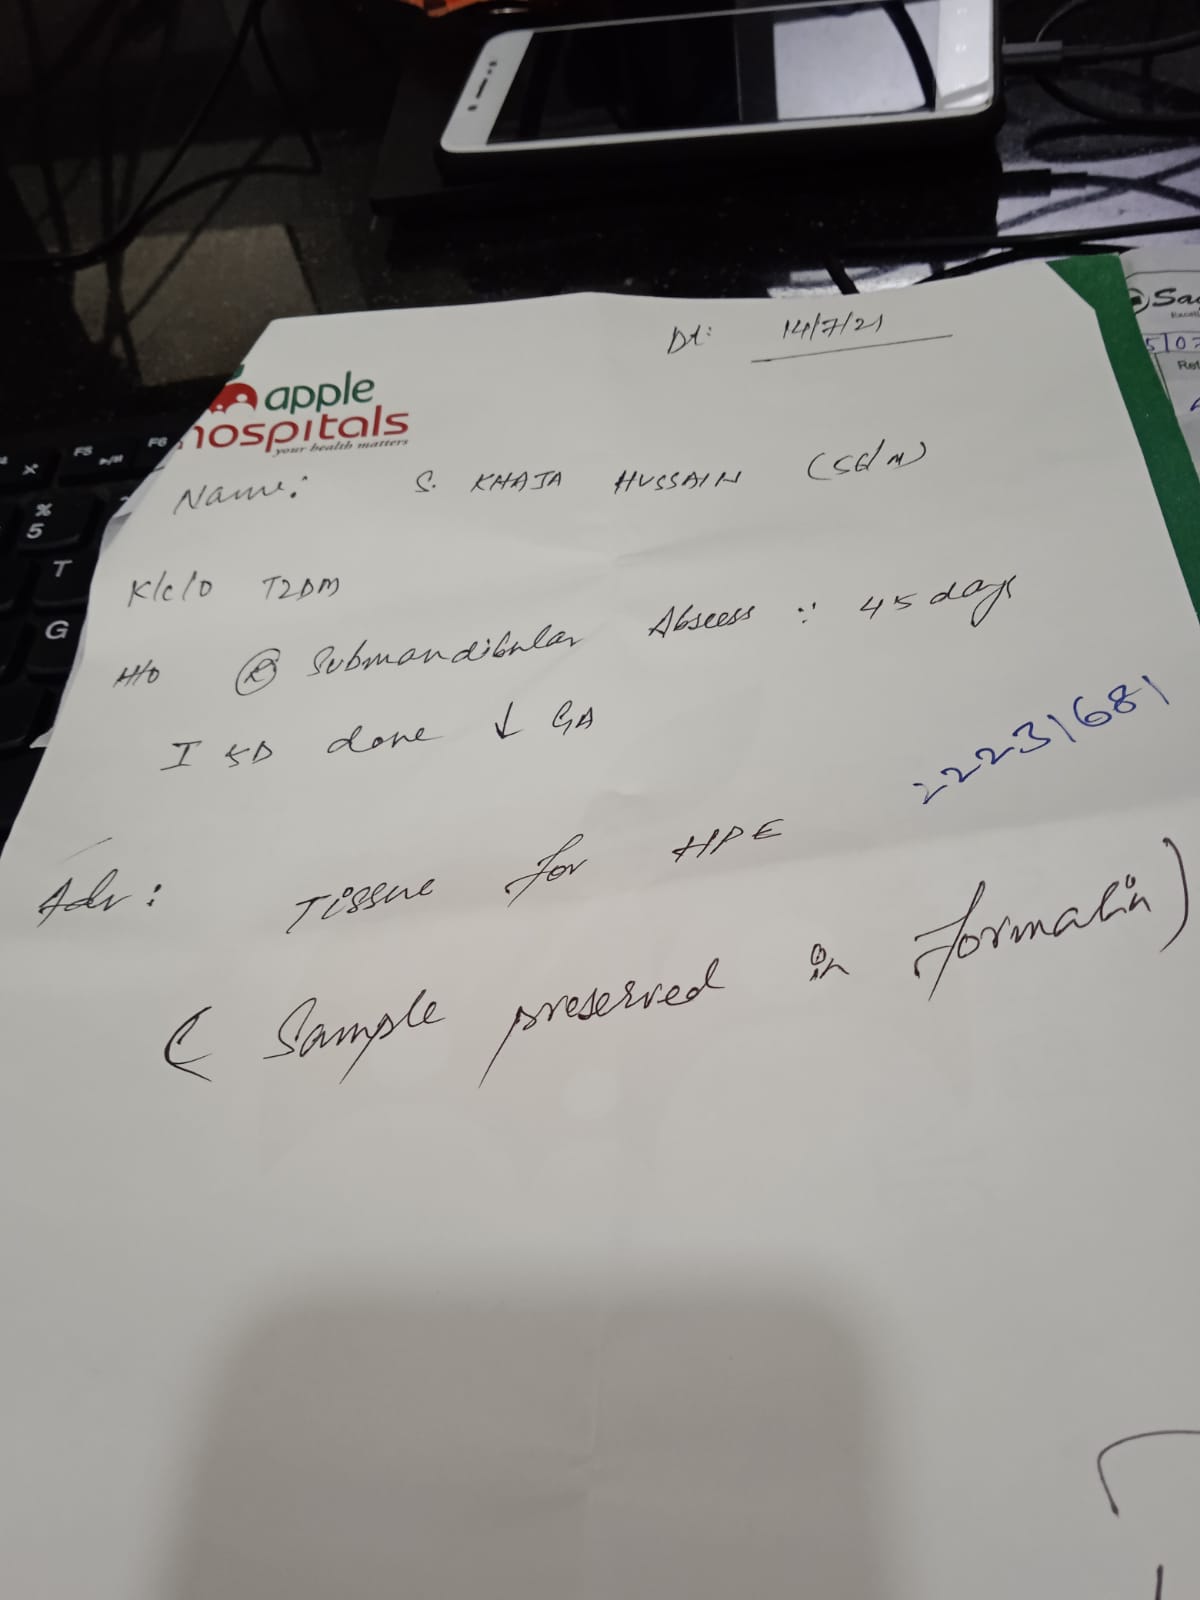 Dt: 14/7/21
apple
hospitals
your health matters
Name: S. KHAJA HUSSAIN
K/c/o T2DM
H/o Ⓡ Submandibular Abscess ∵ 45 days
I & D done ↓ GA
22231681
Adv: Tissue for HPE
( Sample preserved in Formalin )
F5
F6
%
5
T
G